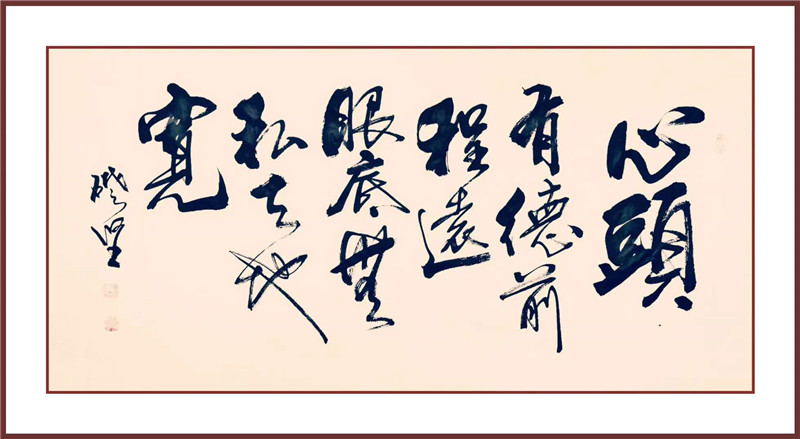 心頭
有德前
程遠
眼底無
私天地
寬